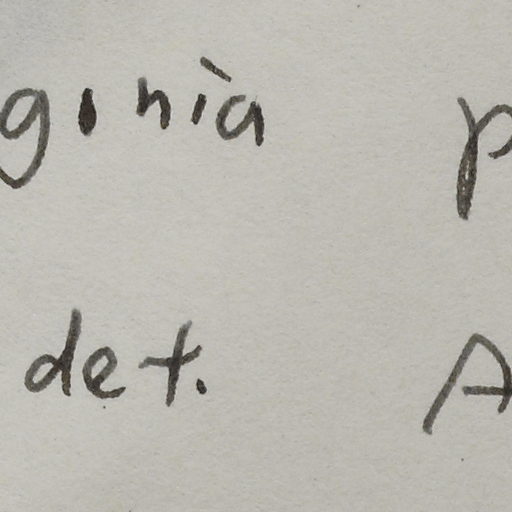 ginia p
det. A